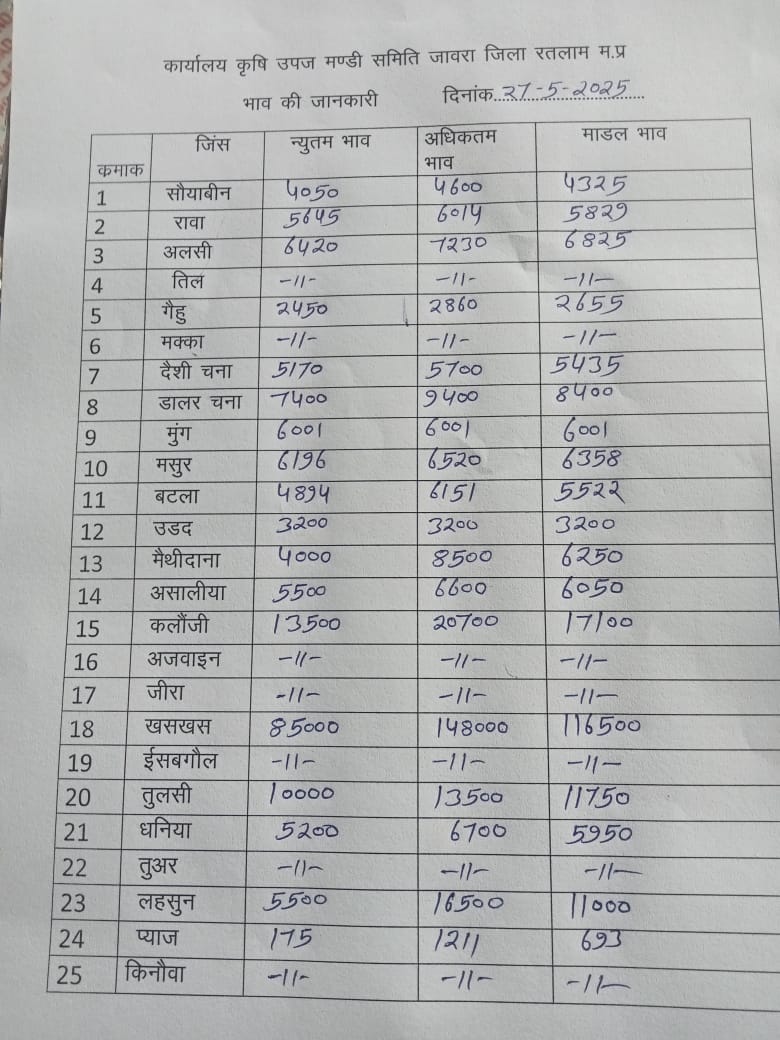 कार्यालय कृषि उपज मण्डी समिति जावरा जिला रतलाम म.प्र
भाव की जानकारी दिनांक..27-5-2025......
कमाक जिंस न्युतम भाव अधिकतम भाव माडल भाव
1 सौयाबीन 4050 4600 4325
2 रावा 5645 6014 5829
3 अलसी 6420 7230 6825
4 तिल -11- -11- -11-
5 गैहु 2450 2860 2655
6 मक्का -11- -11- -11-
7 दैशी चना 5170 5700 5435
8 डालर चना 7400 9400 8400
9 मुंग 6001 6001 6001
10 मसुर 6196 6520 6358
11 बटला 4894 6151 5522
12 उडद 3200 3200 3200
13 मैथीदाना 4000 8500 6250
14 असालीया 5500 6600 6050
15 कलौंजी 13500 20700 17100
16 अजवाइन -11- -11- -11-
17 जीरा -11- -11- -11-
18 खसखस 85000 148000 116500
19 ईसबगौल -11- -11- -11-
20 तुलसी 10000 13500 11750
21 धनिया 5200 6700 5950
22 तुअर -11- -11- -11-
23 लहसुन 5500 16500 11000
24 प्याज 175 1211 693
25 किनौवा -11- -11- -11-